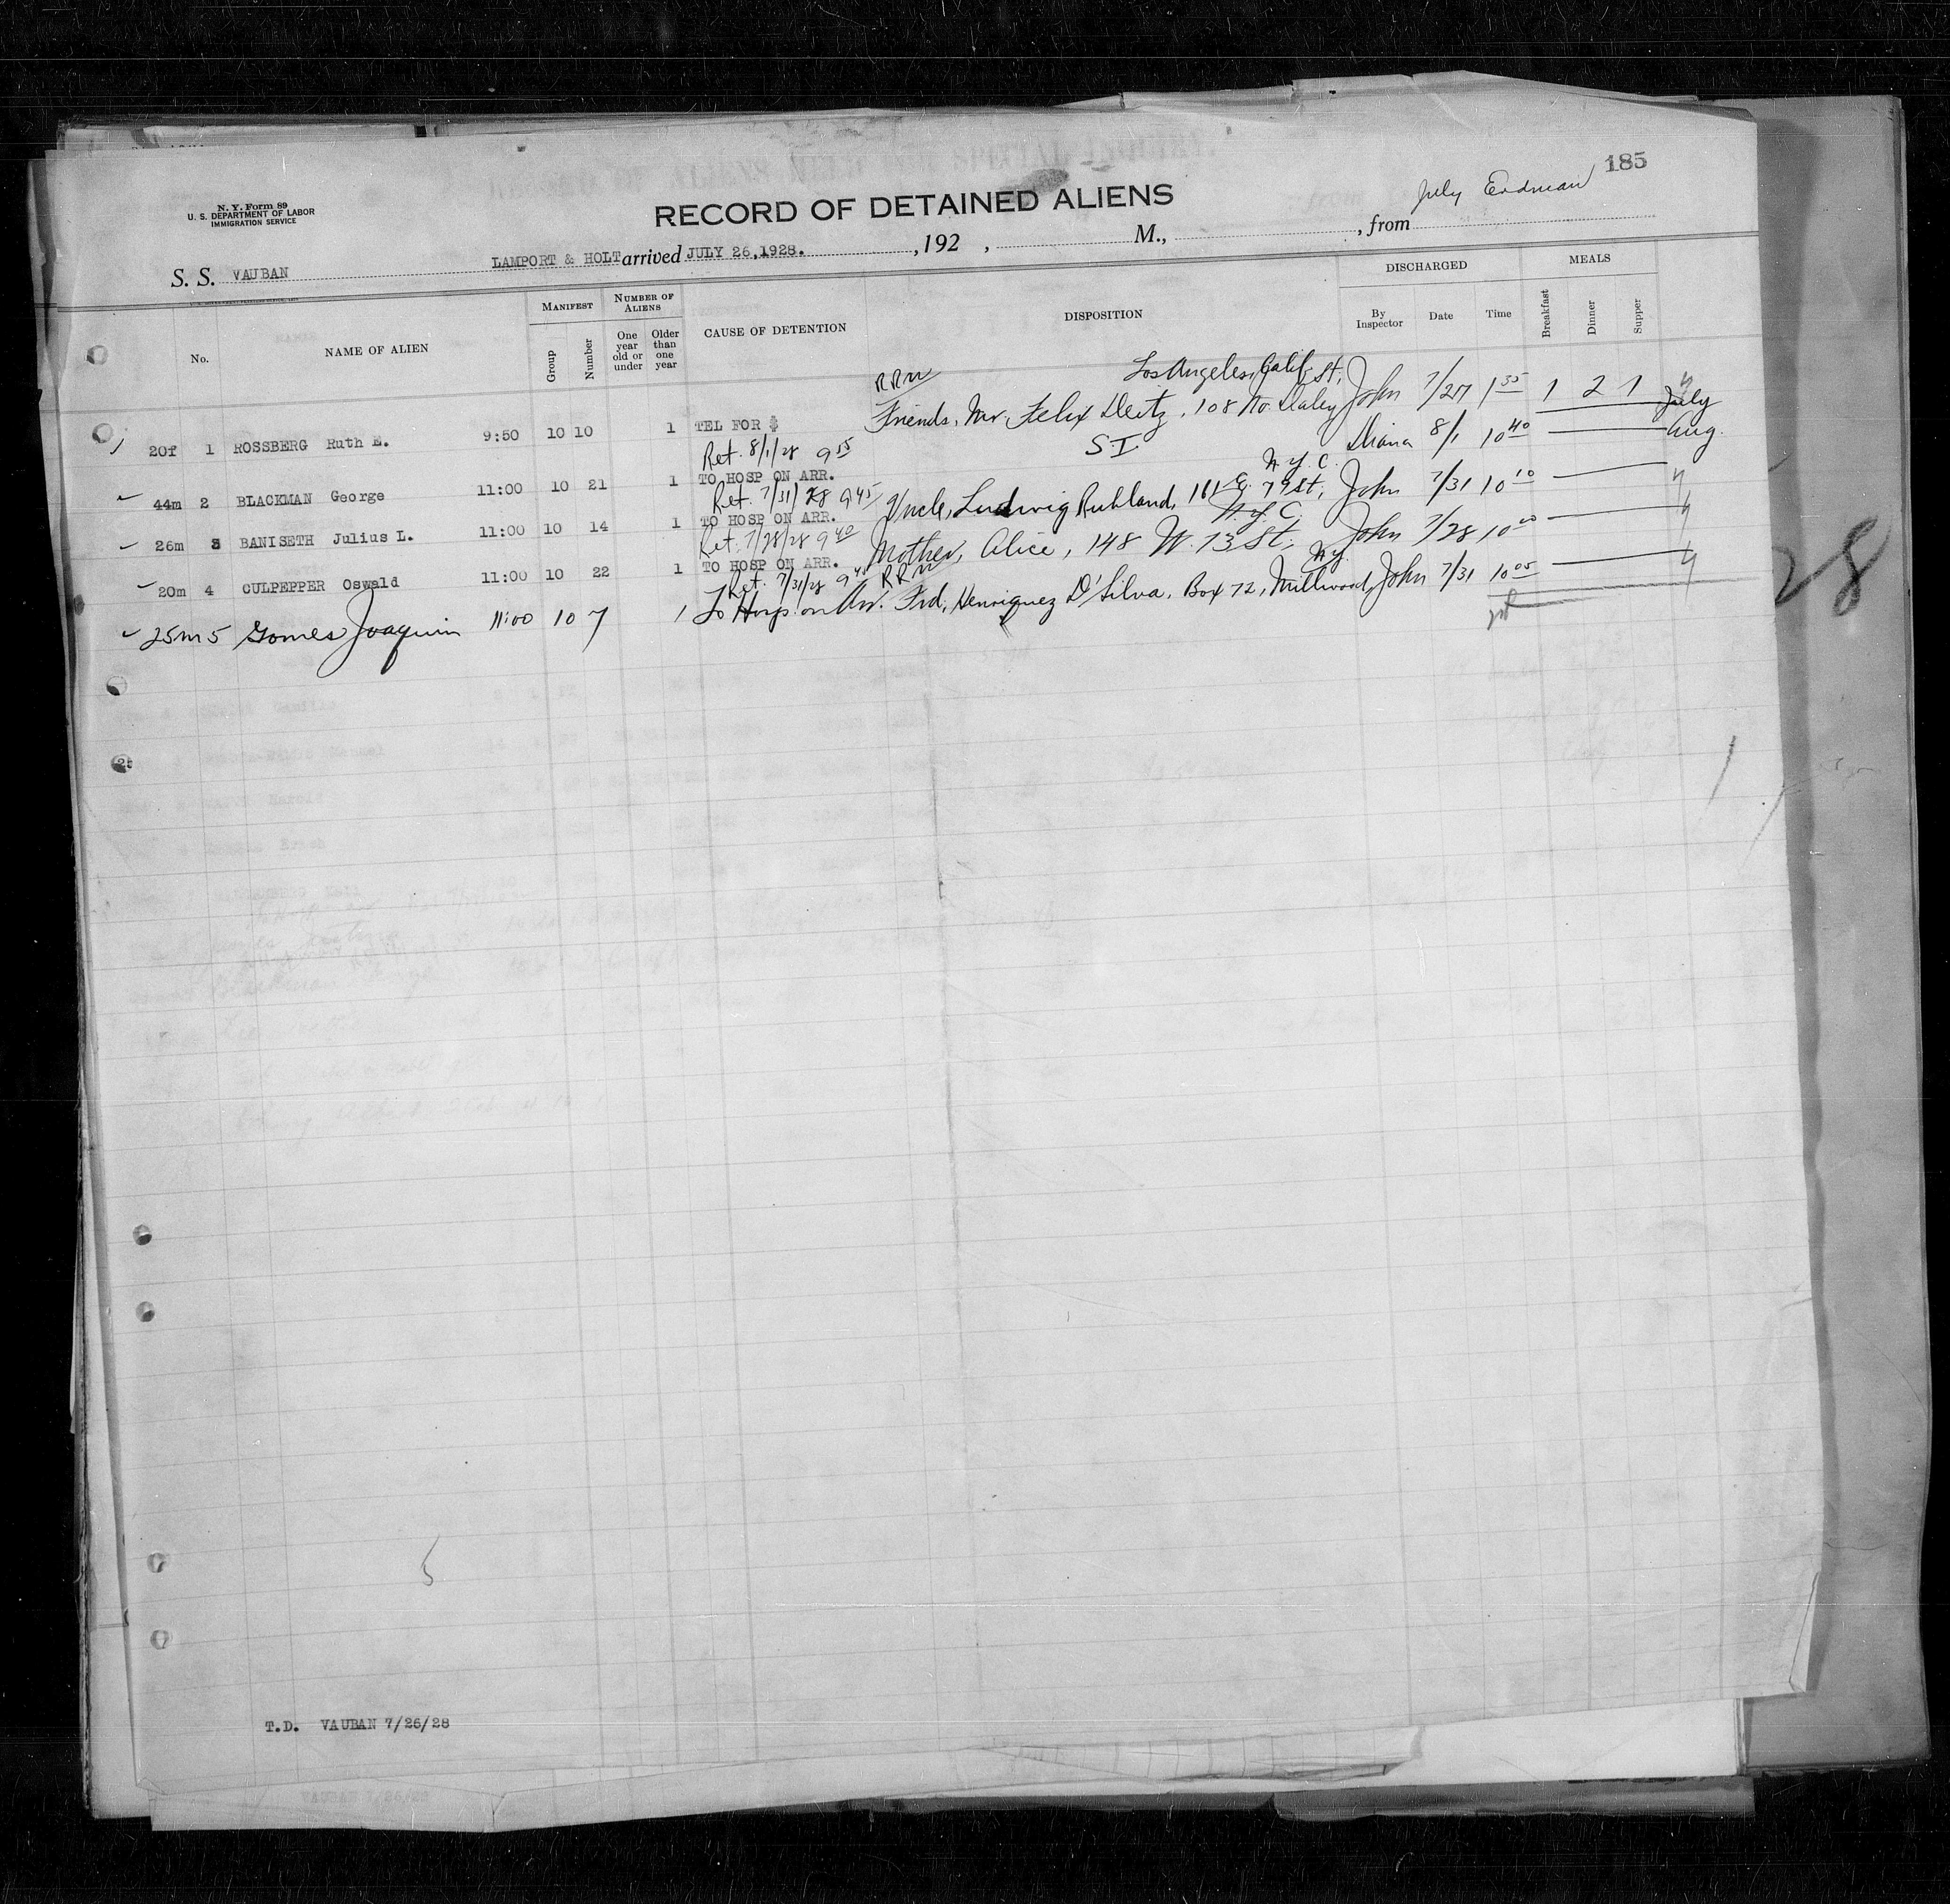 185
July Erdman
N. Y. Form 89
U. S. DEPARTMENT OF LABOR
IMMIGRATION SERVICE
RECORD OF DETAINED ALIENS
S. S. VAUBAN LAMPORT & HOLT arrived JULY 26,1928. , 192 , M., , from
No. NAME OF ALIEN MANIFEST Group Number NUMBER OF ALIENS One year old or under Older than one year CAUSE OF DETENTION DISPOSITION DISCHARGED By Inspector Date Time MEALS Breakfast Dinner Supper
RRW Los Angeles, Calif.
20f 1 ROSSBERG Ruth E. 9:50 10 10 1 TEL FOR $ Friends, Mr. Felix Deitz, 108 No. Daley St, John 7/27 1 35 1 2 1 July
Ret. 8/1/28 9 55
44m 2 BLACKMAN George 11:00 10 21 1 TO HOSP ON ARR. S I Diana 8/1 10 40 Aug.
Ret. 7/31/28 9 45 N.Y.C.
26m 3 BANISETH Julius L. 11:00 10 14 1 TO HOSP ON ARR. Uncle, Ludwig Ruhland, 161 E. 79 St, John 7/31 10 10
Ret. 7/28/28 9 40 N.Y.C.
20m 4 CULPEPPER Oswald 11:00 10 22 1 TO HOSP ON ARR. Mother, Alice, 148 W. 13 St, John 7/28 10 00
Ret. 7/31/28 9 40 RRW N.Y.
25m 5 Gomes Joaquim 11:00 10 7 1 To Hosp. on Arr. Frd, Henriquez D'Silva, Box 72, Millwood, John 7/31 10 05
28
5
T.D. VAUBAN 7/26/28